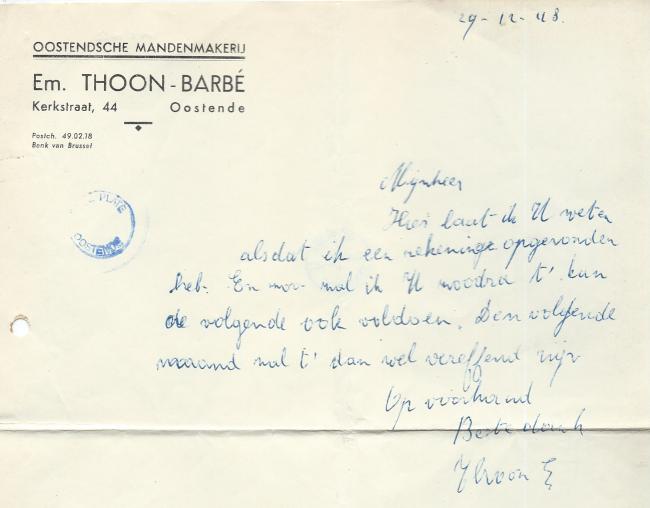 29-12-48.
OOSTENDSCHE MANDENMAKERIJ
Em. THOON - BARBÉ
Kerkstraat, 44 Oostende
Postch. 49.02.18
Bank van Brussel
PLATE
OOSTENDE
Mijnheer
Hier laat ik U weten
alsdat ik een rekeninge opgevonden
heb. En zal ik U t' kan
de volgende ook voldoen. Den volgende
maand zal t' dan wel vereffend zijn
Op voorhand
Beste dank
Thoon E